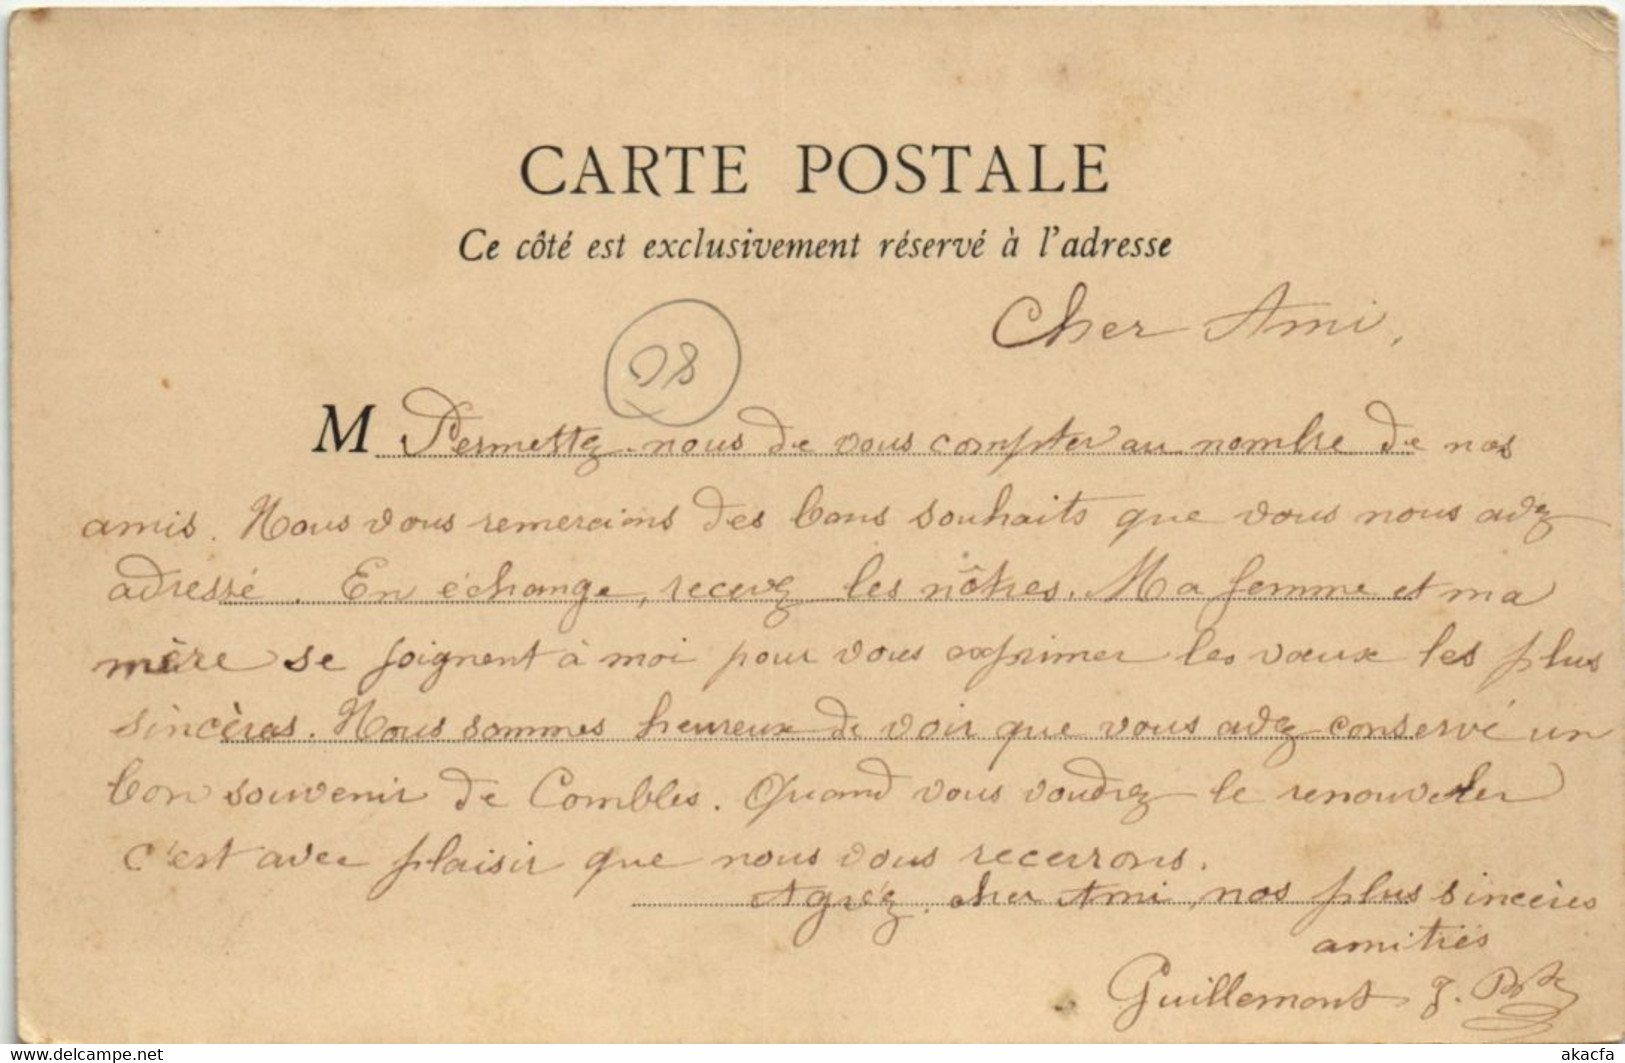 CARTE POSTALE
Ce côté est exclusivement réservé à l'adresse
Cher Ami,
M Permettez-nous de vous compter au nombre de nos
amis. Nous vous remercions des bons souhaits que vous nous avez
adressé. En échange, recevez les nôtres. Ma femme et ma
mère se joignent à moi pour vous exprimer les vœux les plus
sincères. Nous sommes heureux de voir que vous avez conservé un
bon souvenir de Combles. Quand vous voudrez le renouveler
c'est avec plaisir que nous vous recevrons.
Agréez, cher Ami, nos plus sincères
amitiés
Guillemont J.
akacfa